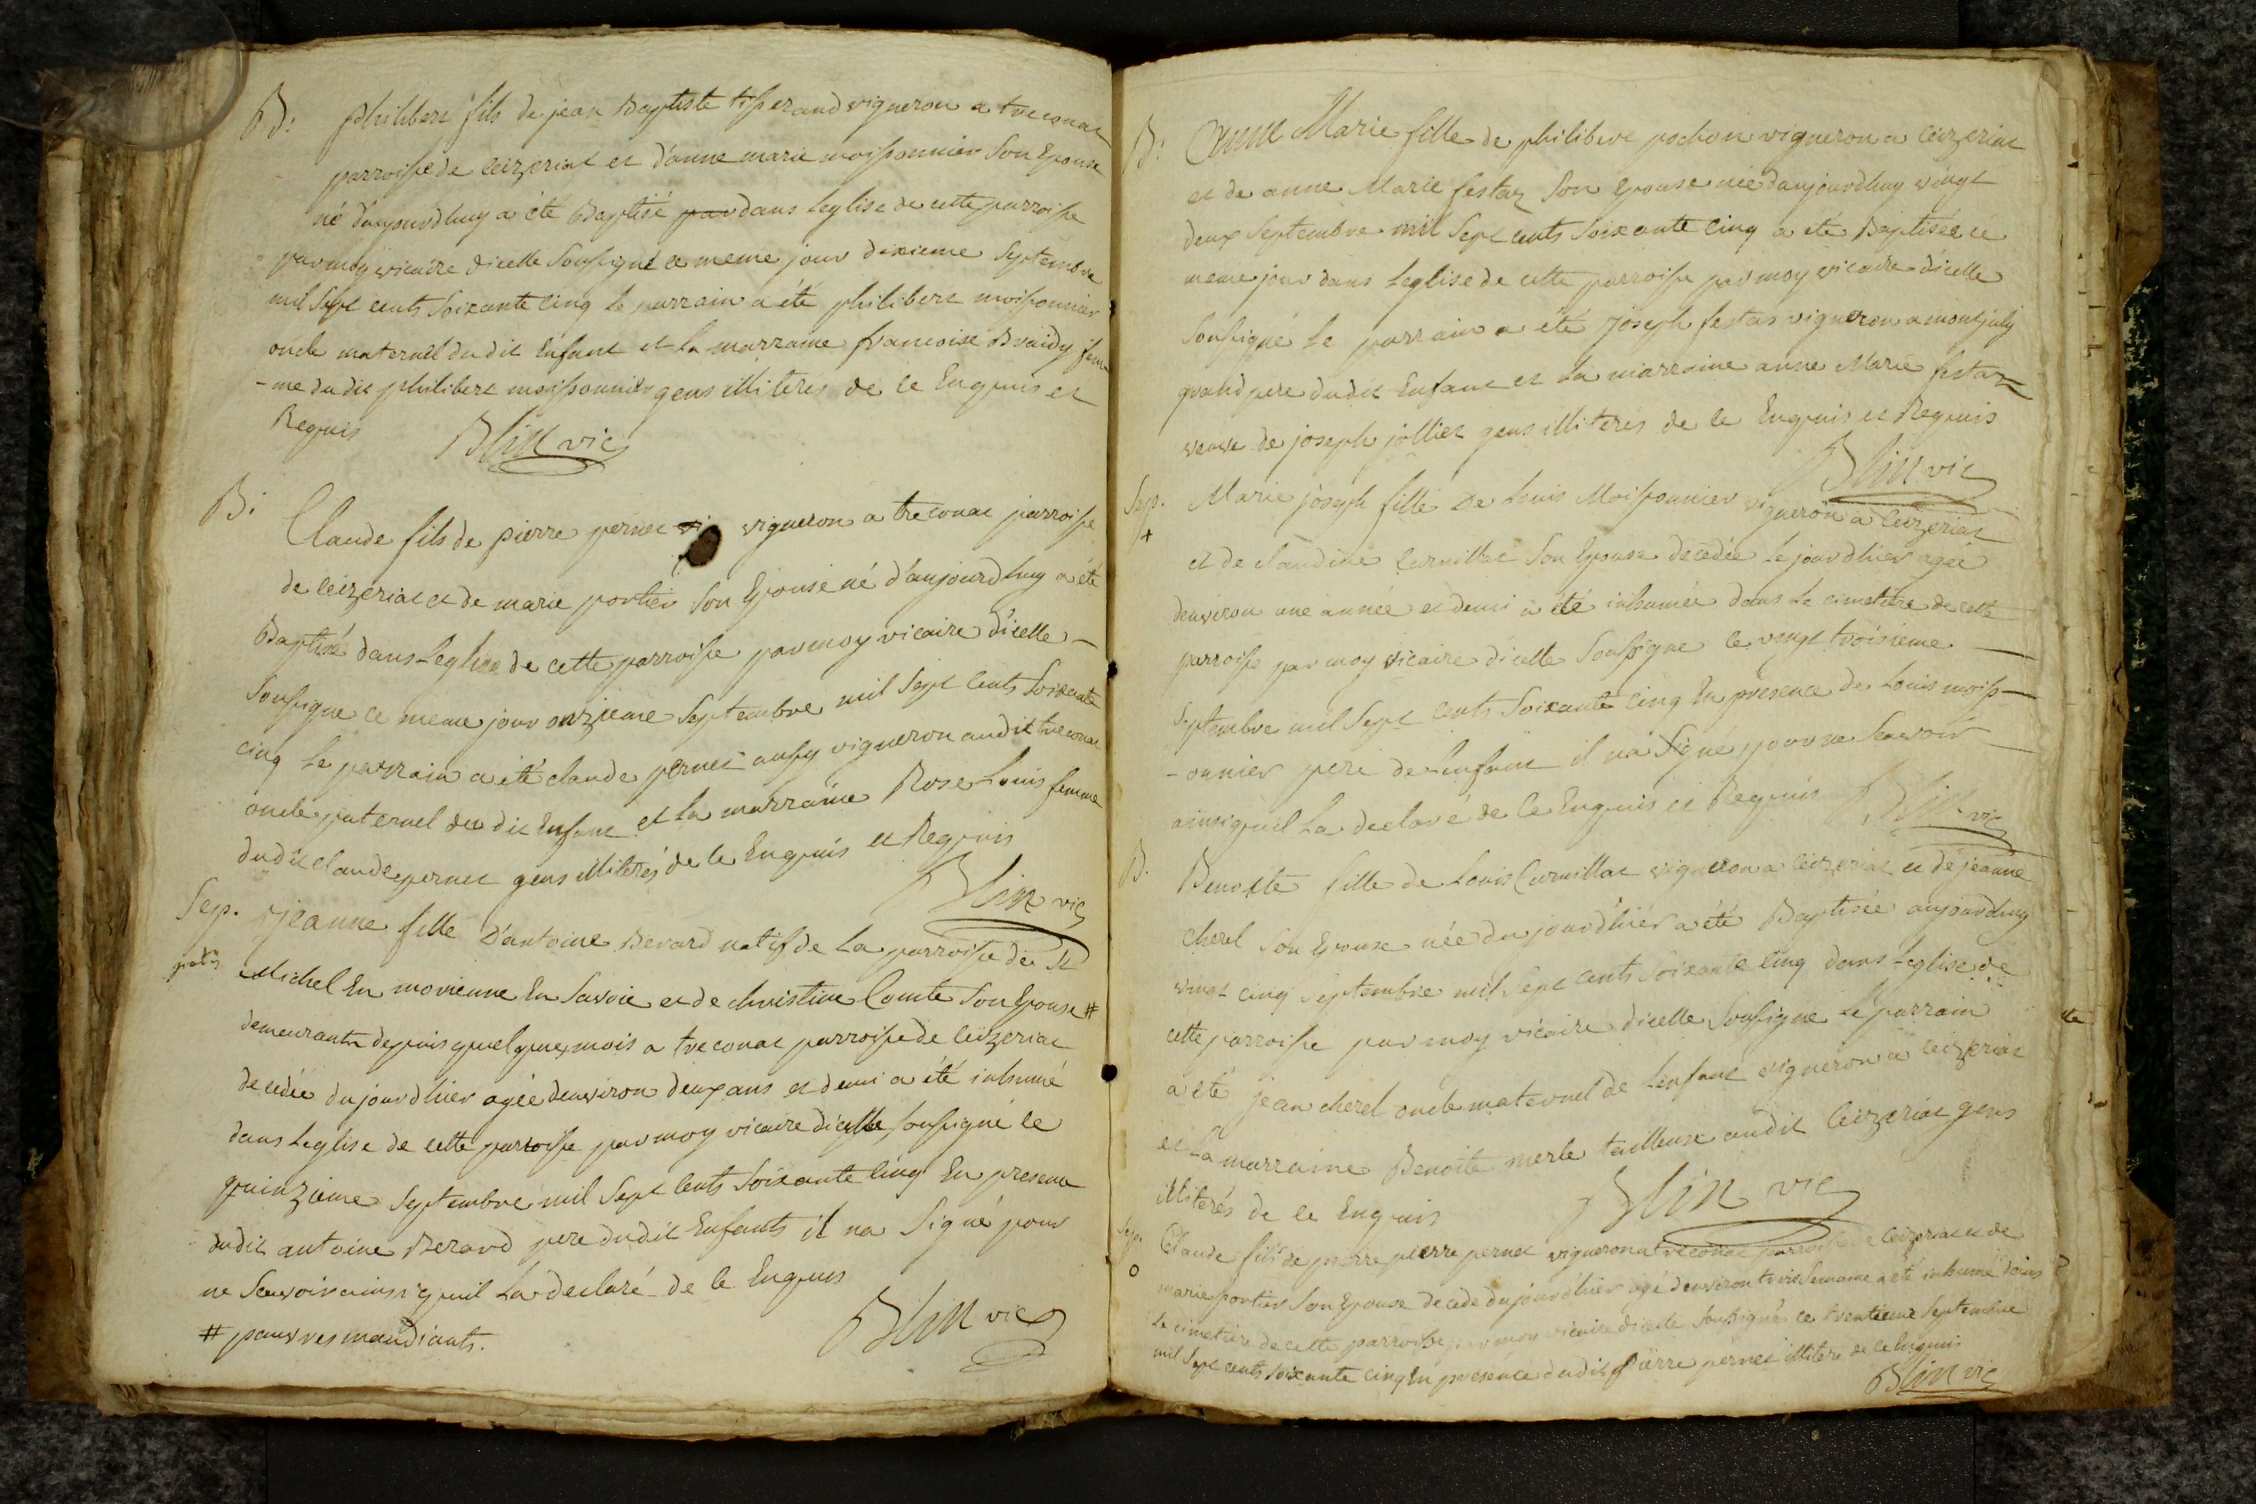 B: philibert fils de jean Baptiste tisserand vigneron a treconat
parroisse de ceizeriat et d'anne marie moissonnier son Epouse
né d'aujourdhuy a été Baptisé par dans leglise de cette parroisse
par moy vicaire dicelle soussigné ce meme jour dixieme septembre
mil sept cents soixante cinq le parrain a été philibert moissonnier
oncle maternel du dit Enfant et la marraine francoise Braidy fem
-me du dit philibert moissonnier gens illiteres de ce Enquis et
Requis Blin vic
B: Claude fils de pierre pernet vi vigneron a treconat parroisse
de ceizeriat et de marie portier son Epouse né d'aujourdhuy a été
Baptisé dans leglise de cette parroisse par moy vicaire dicelle
soussigne ce meme jour onzieme septembre mil sept cents soixante
cinq le parrain a été claude pernet aussy vigneron audit treconat
oncle paternel du dit Enfant et la marraine Rose Louis femme
dudit claude pernet gens illiterés de ce Enquis et Requis
Blin vic
Sep. jeanne fille d'antoine Berard natif de la parroisse de St
gratis Michel En morienne En Savoie et de christine Comte son Epouse #
demeurants depuis quelques mois a treconat parroisse de ceizeriat
decedée du jourdhier agée denviron deux ans et demi a été inhumé
dans leglise de cette parroisse par moy vicaire dicelle soussigné le
quinzieme septembre mil sept cents soixante cinq En presence
dudit antoine Berard pere dudit Enfants il na signé pour
ne scavoir ainsi quil la declaré de ce Enquis
# pauvres mandiants. Blin vic
B: Anne Marie fille de philibert pochon vigneron a ceizeriat
et de anne Marie festaz son Epouse née daujourdhuy vingt
deux septembre mil sept cents soixante cinq a été Baptisée ce
meme jour dans leglise de cette parroisse par moy vicaire dicelle
soussigné le parrain a été joseph festas vigneron a montjuly
grand pere dudit Enfant et la marraine anne Marie festaz
veuve de joseph jolliet gens illiteres de ce Enquis et Requis
Blin vic
Sep. Marie joseph fille de Louis Moissonnier vigneron a ceizeriat
+ et de claudine Curnillat son Epouse decedée le jourdhier agée
denviron une année et demi a été inhumée dans le cimetiere de cette
parroisse par moy vicaire dicelle soussigne le vingt troisieme
septembre mil sept cents soixante cinq En presence de Louis moiss-
-onnier pere de lenfant il na signé pour ne scavoir
ainsi quil la declaré de ce Enquis et Requis Blin vic
B. Benoite fille de Louis Curnillat vigneron a ceizeriat et de jeanne
cherel son Epouse née du jourdhier a été Baptisée aujourdhuy
vingt cinq septembre mil sept cents soixante cinq dans leglise de
cette parroisse par moy vicaire dicelle soussigne le parrain
a été jean cherel oncle maternel de lenfant vigneron a ceizeriat
et la marraine Benoite merle tailleuse audit ceizeriat gens
illiterés de ce Enquis Blin vic
Sep. Claude fils de pierre pierre pernet vigneron a treconat parroisse de ceizeriat et de
o marie portier son Epouse decedé du jourdhier agé denviron trois semaine a été inhumé dans
le cimetiere de cette parroisse par moy vicaire dicelle soussigné ce trentieme septembre
mil sept cents soixante cinq En presence dudit pierre pernet illitere de ce Enquis
Blin vic